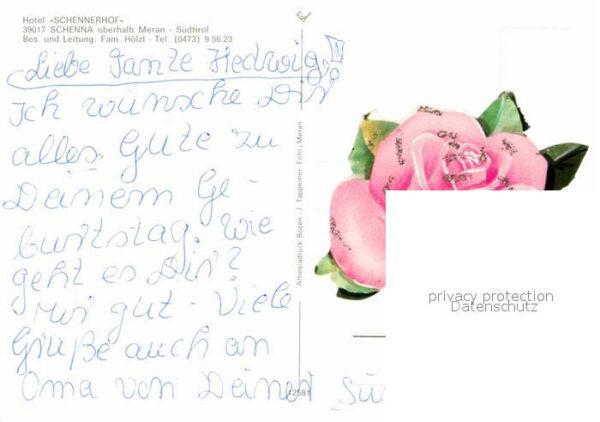 Hotel «SCHENNERHOF»
39017 SCHENNA oberhalb Meran - Südtirol
Bes. und Leitung: Fam. Hölzl - Tel. (0473) 9 56 23
Liebe Tante Hedwig!
Ich wünsche Dir
alles Gute zu
Deinem Ge-
burtstag. Wie
geht es Dir?
Mir gut - Viele
Grüße auch an
Oma von Deiner
Athesiadruck Bozen - J. Tappeiner Foto, Meran
12581
privacy protection
Datenschutz